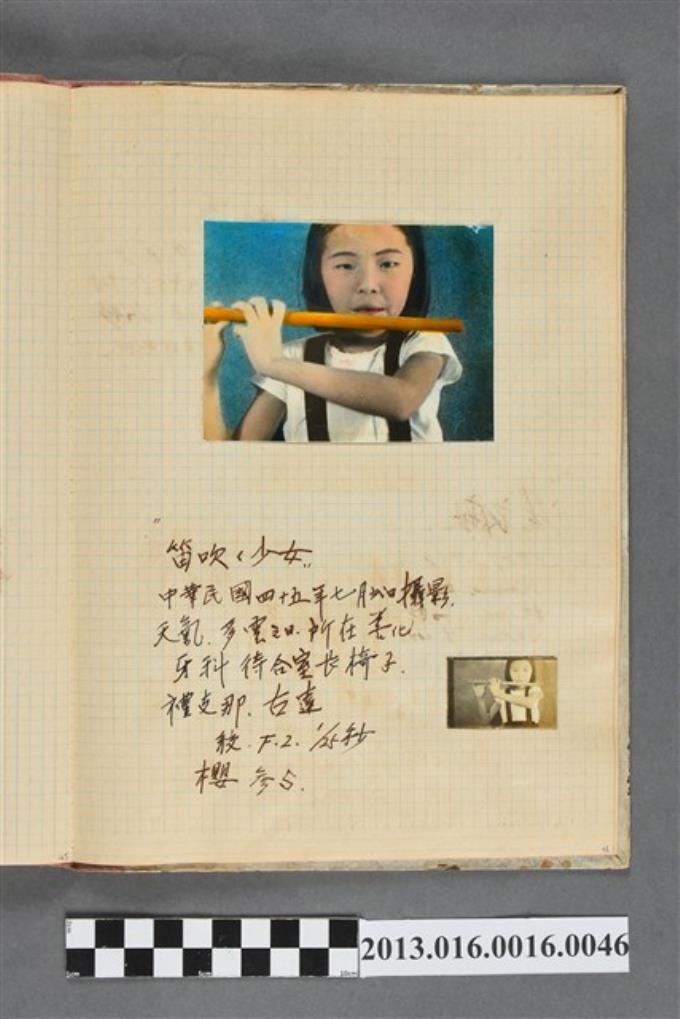 "笛吹く少女"
中華民國四十五年七月 日攝影.
天氣.多雲之日.所在善化
牙科 待合室長椅子.
禮支那.古遠
較.F.2. 1/25秒
櫻 参5.
45
46
5cm
10cm
2013.016.0016.0046